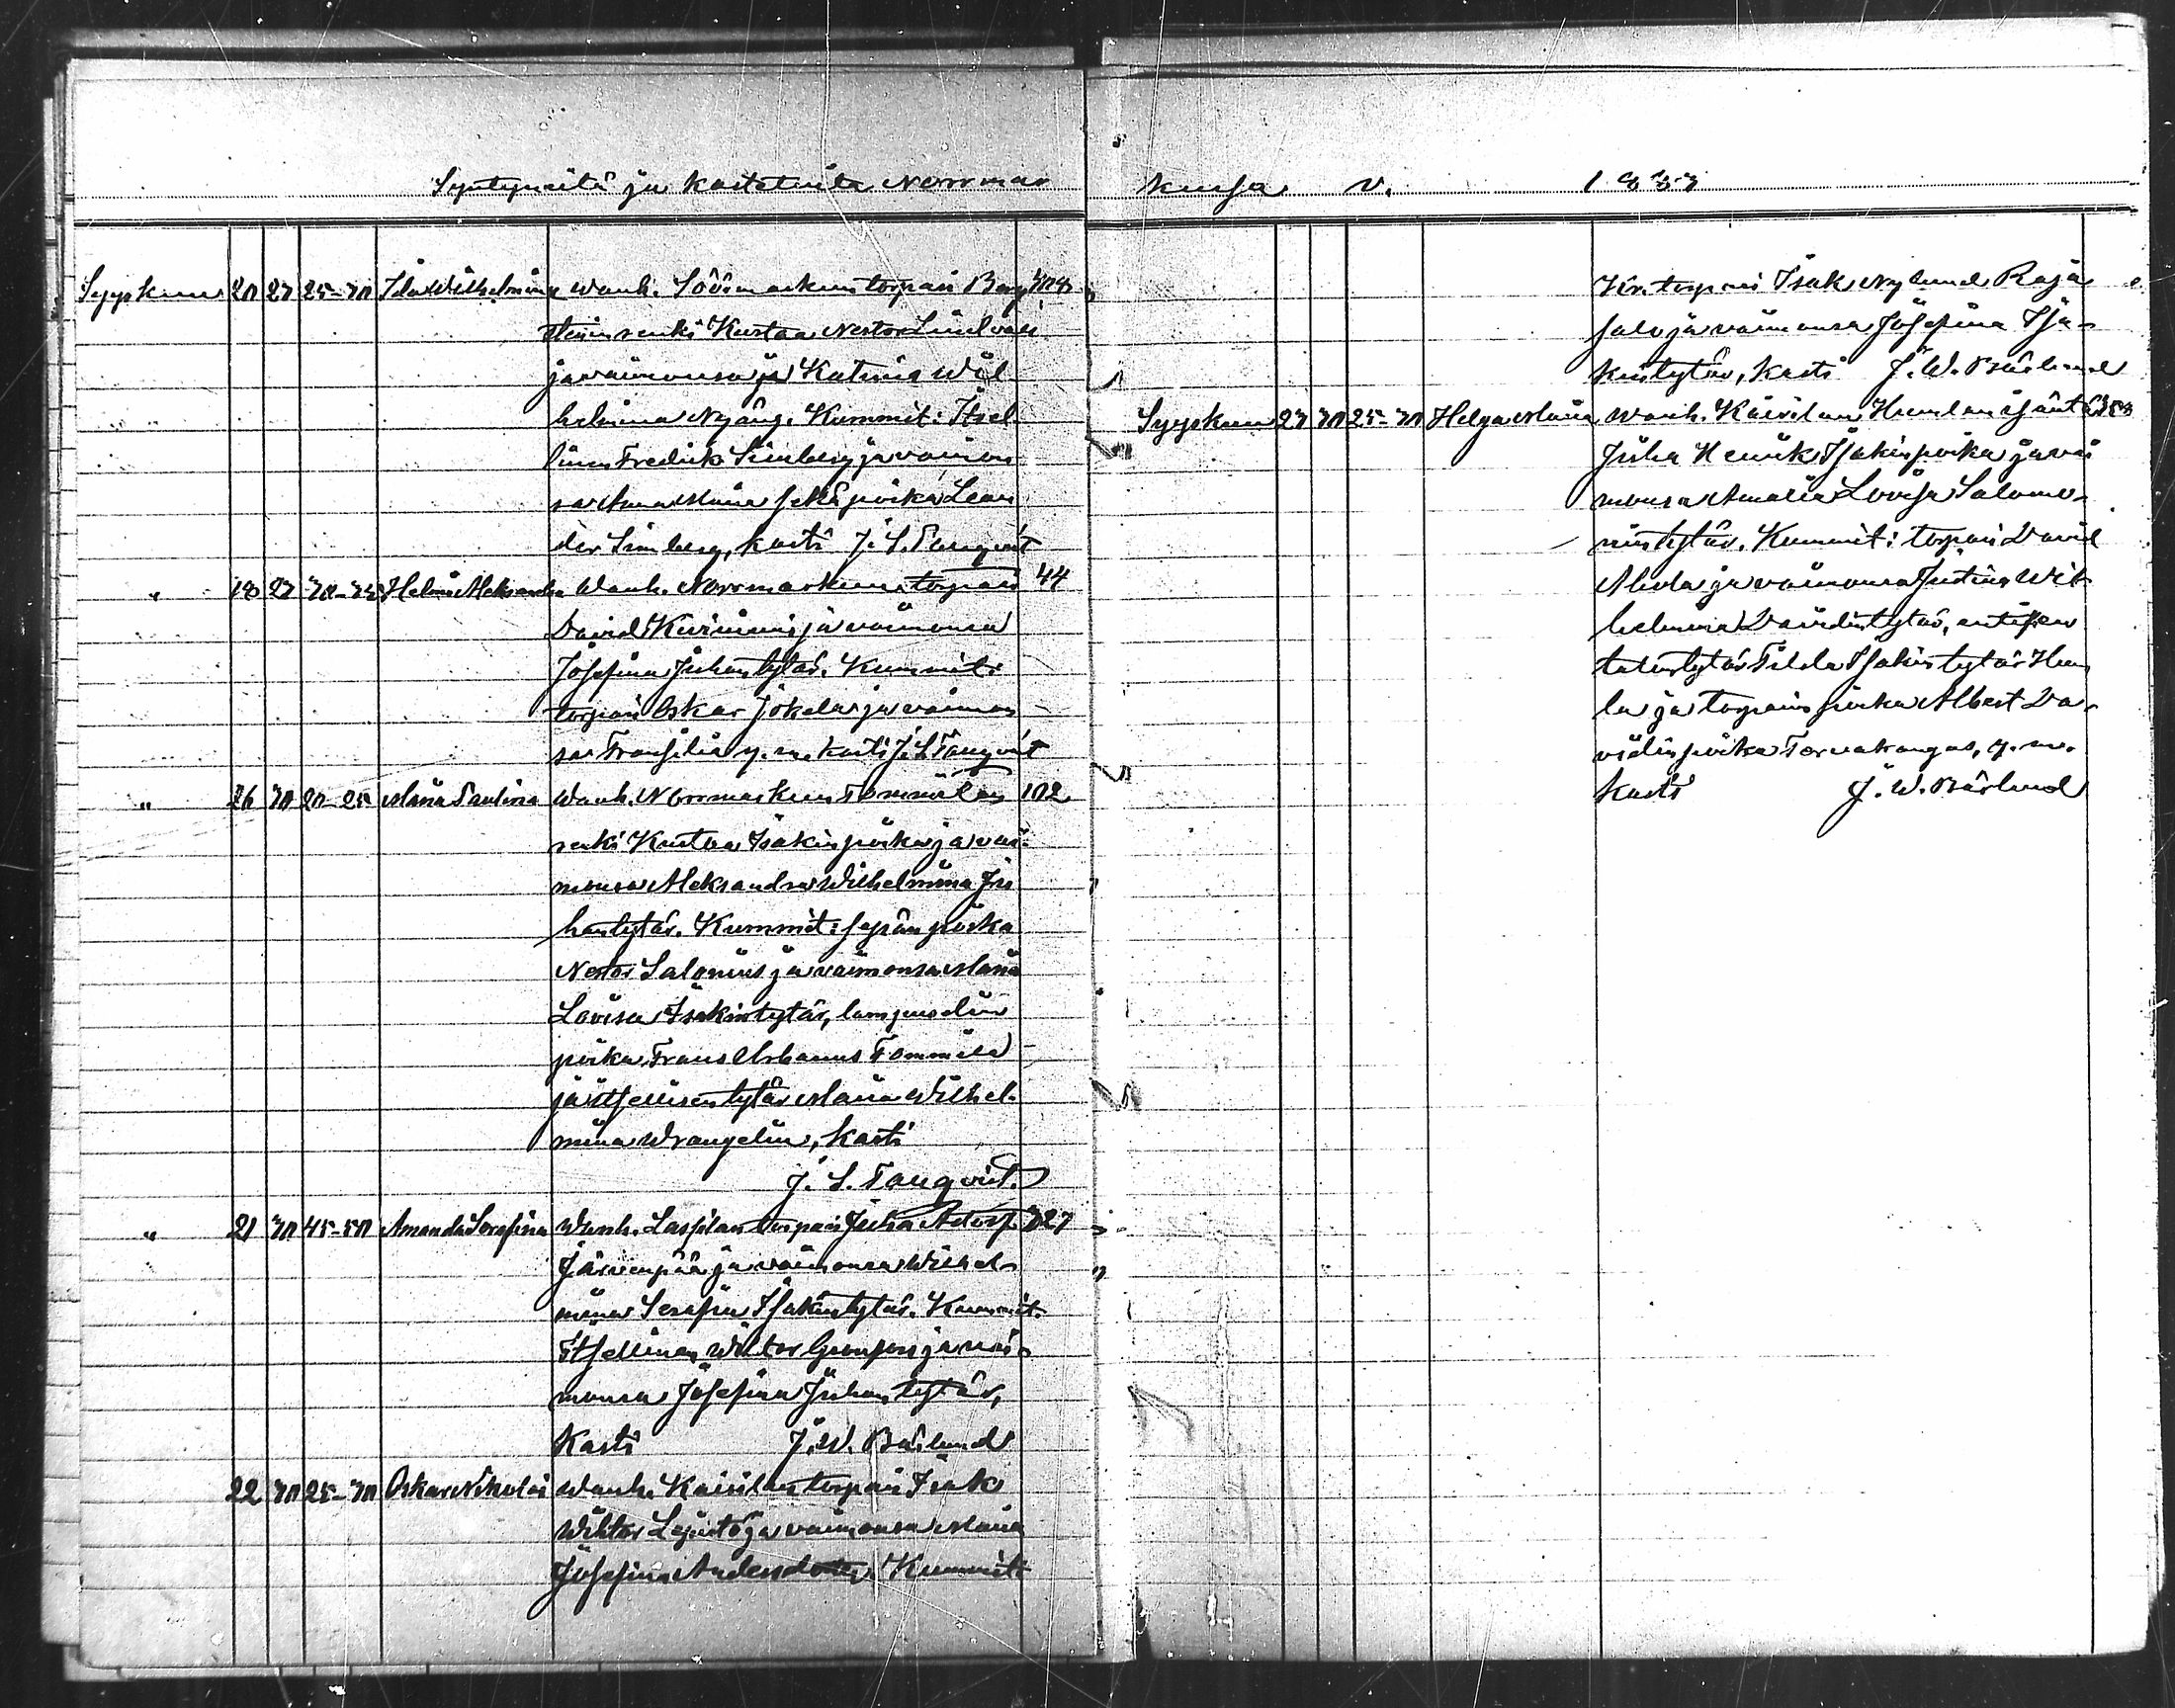 Syntyneitä ja kastetuita Norrmar
Syyskuu 20 27 25-30 Ida Wilhelmina Wanh. Södermarkun torpari Berg
renki Kustaa Nestor Lindvall
ja vaimonsa Katrina Wil
helmina Nyäng. Kummit: Itsel
linen Fredrik Simberg ja vaimon
sa Anna Maria sekä poika Lean
der Simberg, kasti J. S. Tanqvist
" 18 27 30-35 Helmi Aleksandra Wanh. Norrmarkun torpari 44
David Kurimies ja vaimonsa
Josefina Juhantytär. Kummit:
torpari Oskar Jokela ja vaimon
sa Fransilia y. m. kasti J. S. Tanqvist
" 26 30 20-25 Maria Paulina Wanh. Norrmarkun Tommilan 102
renki Kustaa Isakinpoika ja vai-
monsa Aleksandra Wilhelmina Ju
hantytär. Kummit: sepän poika
Nestor Salonius ja vaimonsa Maria
Lovisa Isakintytär, lampuodin
poika Frans Urbanus Tommila
ja itsellisen tytär Maria Wilhel-
mina Wrangelin, Kasti
J. S. Tanqvist.
" 21 30 45-50 Amanda Serafina Wanh. Lassilan torpari Juha Adolf 327
Järvenpää ja vaimonsa Wilhel-
mina Serafia Isakintytär. Kummit.
Itsellinen Viktor Gronfors ja vai-
monsa Josefina Juhantytär,
Kasti J. W. Bärlund
22 30 25-30 Oskar Nikolai Wanh. Kairilan torpari Isak
Wiktor Lepistö ja vaimonsa Maria
Josefina Andersdotter Kummit:
kussa v. 1887
torpari Isak Nylund Raja
salo ja vaimonsa Josefina Isa-
kintytär, Kasti J. W. Bärlund
Syyskuu 27 30 25-30 Helga Maria Wanh. Kairilan Humlan isäntä
Juha Henrik Isakinpoika ja vai
monsa Amalia Lovisa Salomo-
nintytär. Kummit: torpari David
Ahola ja vaimonsa Justina Wil
helmina Davidintytär,
tytär Tilda Isakintytär Hum
la ja torparin poika Albert Da-
vidinpoika Tervakangas, y. m.
Kasti J. W. Bärlund